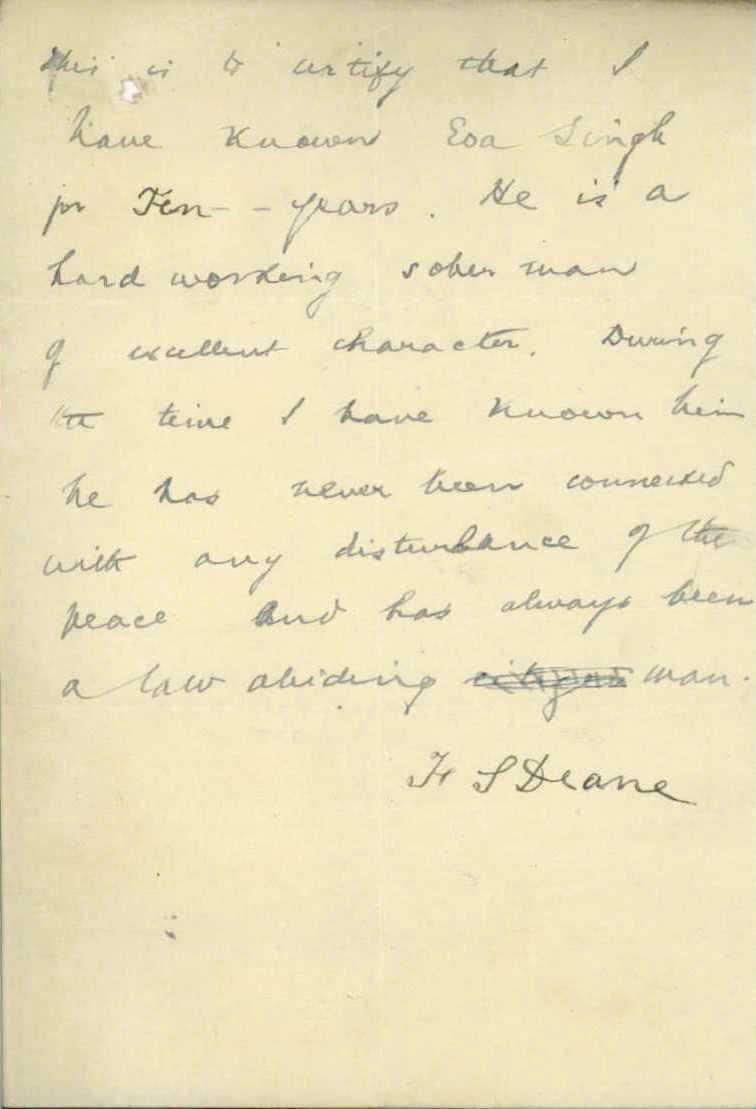 This is to certify that I
have known Esa Singh
for Ten - - years. He is a
hard working sober man
of excellent character. During
the time I have known him
he has never been connected
with any disturbance of the
peace and has always been
a law abiding citizen man.
H S Deane